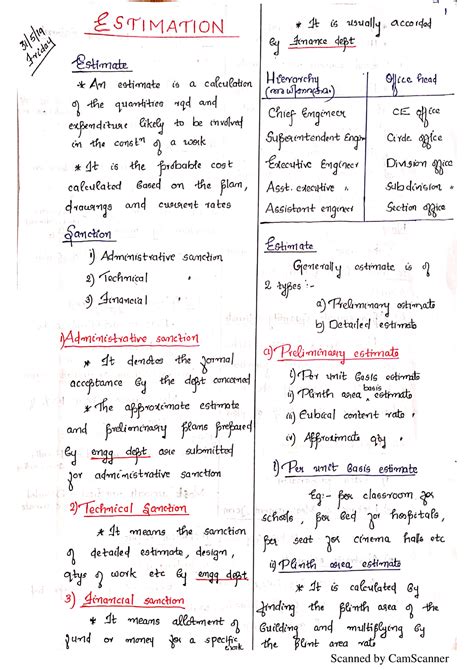 31/5/19
Friday
ESTIMATION
Estimate
* An estimate is a calculation
of the quantities rqd and
expenditure likely to be involved
in the constn of a work
* It is the probable cost
calculated based on the plan,
drawings and current rates
Sanction
1) Administrative sanction
2) Technical "
3) Financial "
1) Administrative sanction
* It denotes the formal
acceptance by the dept concerned
* The approximate estimate
and preliminary plans prepared
by engg dept are submitted
for administrative sanction
2) Technical Sanction
* It means the sanction
of detailed estimate, design,
qtys of work etc by engg dept
3) Financial sanction
* It means allotment of
fund or money for a specific
work
1
* It is usually accorded
by Finance dept
Hierarchy
Office head
Chief Engineer
CE office
Superintendent Engr
Circle office
Executive Engineer
Division office
Asst. executive "
Subdivision "
Assistant engineer
Section office
Estimate
Generally estimate is of
2 types :-
a) Preliminary estimate
b) Detailed estimate
a) Preliminary estimate
i) Per unit basis estimate
ii) Plinth area basis estimate
iii) Cubical content rate "
iv) Approximate qty "
i) Per unit basis estimate
Eg:- per classroom for
schools, per bed for hospitals,
per seat for cinema halls etc
ii) Plinth area estimate
* It is calculated by
finding the plinth area of the
building and multiplying by
the plint area rate
Scanned by CamScanner